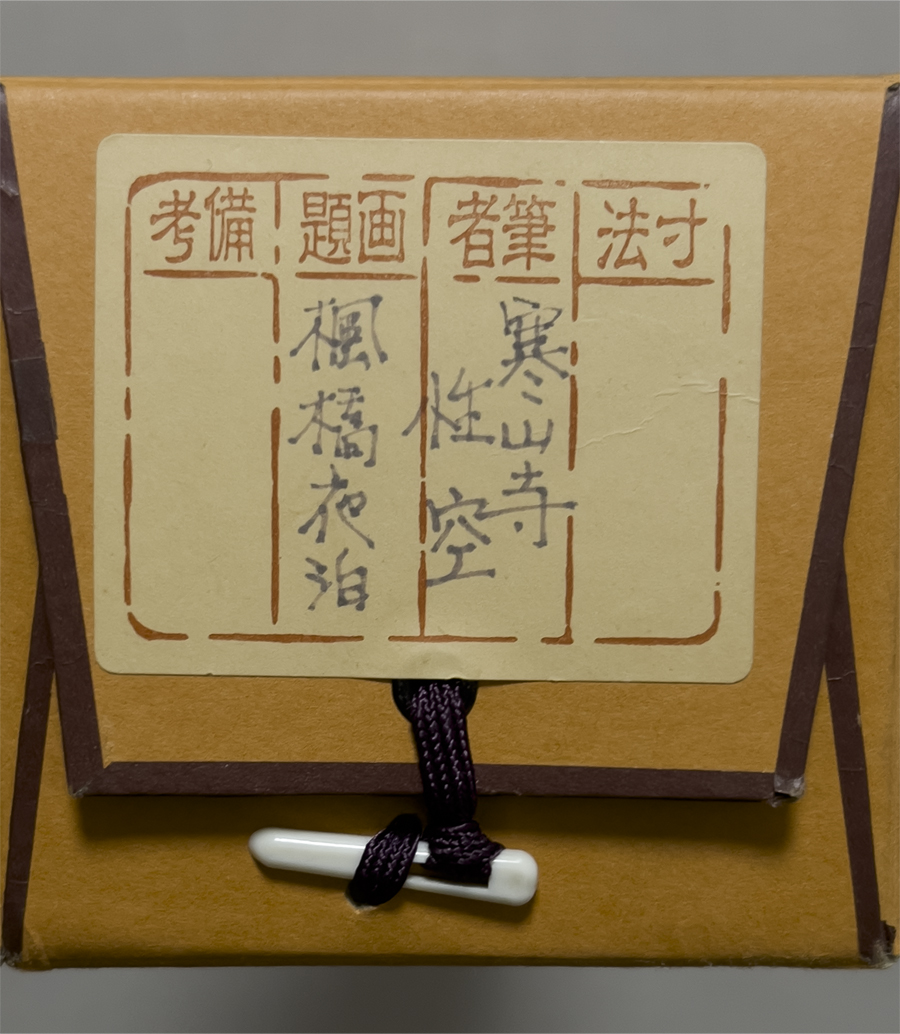 寸法
筆者
寒山寺
性空
画題
楓橋夜泊
備考